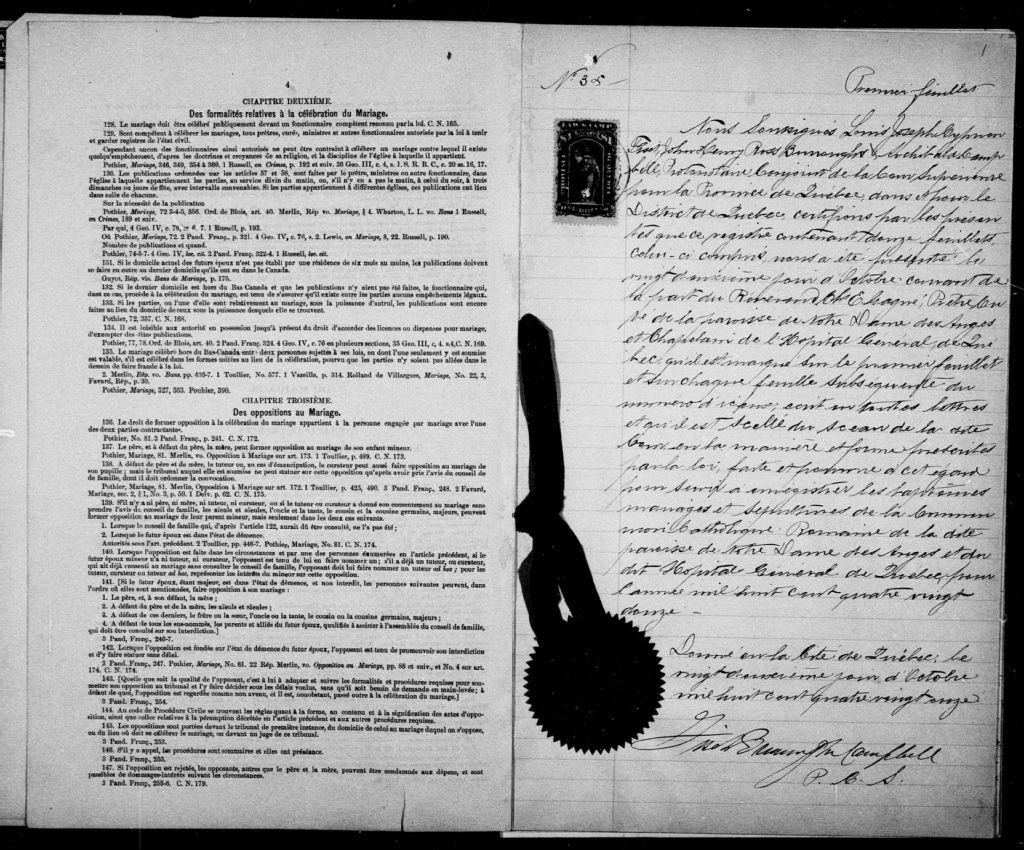 4
CHAPITRE DEUXIÈME.
Des formalités relatives à la célébration du Mariage.
128. Le mariage doit être célébré publiquement devant un fonctionnaire compétent reconnu par la loi. C. N. 165.
129. Sont compétents à célébrer les mariages, tous prêtres, curés, ministres et autres fonctionnaires autorisés par la loi à tenir
et garder registres de l'état civil.
Cependant aucun des fonctionnaires ainsi autorisés ne peut être contraint à célébrer un mariage contre lequel il existe
quelqu'empêchement, d'après les doctrines et croyances de sa religion, et la discipline de l'église à laquelle il appartient.
Pothier, Mariage, 346, 349, 354 à 360. 1 Russell, on Crimes, p. 192 et suiv. 35 Geo. III, c. 4, s. 1. S. R. B. C., c. 20 ss. 16, 17.
130. Les publications ordonnées par les articles 57 et 58, sont faites par le prêtre, ministre ou autre fonctionnaire, dans
l'église à laquelle appartiennent les parties, au service divin du matin, ou, s'il n'y en a pas le matin, à celui du soir, à trois
dimanches ou jours de fête, avec intervalle convenables. Si les parties appartiennent à différentes églises, ces publications ont lieu
dans celle de chacune.
Sur la nécessité de la publication
Pothier, Mariage, 72 3-4-5, 356. Ord. de Blois, art. 40. Merlin, Rép vo. Mariage, § 4. Wharton, L. L. vo. Bans 1 Russell,
on Crimes, 189 et suiv.
Par qui, 4 Geo. IV, c. 76, 7. 1 Russell, p. 193.
Où Pothier, Mariage, 72. 2 Pand. Franç., p. 321. 4 Geo. IV, c. 76, s. 2. Lewis, on Mariage, 8, 22. Russell, p. 190.
Nombre de publications et quand.
Pothier, 74-5-7. 4 Geo. IV, loc. cit. 2 Pand. Franç. 322-4. 1 Russell, loc. cit.
131. Si le domicile actuel des futurs époux n'est pas établi par une résidence de six mois au moins, les publications doivent
se faire en outre au dernier domicile qu'ils ont eu dans le Canada.
Guyot, Rép. vis. Bans de Mariage, p. 175.
132. Si le dernier domicile est hors du Bas Canada et que les publications n'y aient pas été faites, le fonctionnaire qui,
dans ce cas, procède à la célébration du mariage, est tenu de s'assurer qu'il n'existe entre les parties aucuns empêchements légaux.
133. Si les parties, ou l'une d'elle sont relativement au mariage, sous la puissance d'autrui, les publications sont encore
faites au lieu du domicile de ceux sous la puissance desquels elle se trouvent.
Pothier, 72, 357. C. N. 168.
134. Il est loisible aux autorité en possession jusqu'à présent du droit d'accorder des licences ou dispenses pour mariage,
d'exempter des dites publications.
Pothier, 77, 78. Ord. de Blois, art. 40. 2 Pand. Franç. 324. 4 Geo. IV, c. 76 en plusieurs sections, 35 Geo. III, c. 4. s.4, C. N. 169.
135. Le mariage célébré hors du Bas-Canada entre deux personnes sujettes à ses lois, ou dont l'une seulement y est soumise
est valable, s'il est célébré dans les formes usitées au lieu de la célébration, pourvu que les parties n'y soient pas allées dans le
dessein de faire fraude à la loi.
2. Merlin, Rép. vo. Bans. pp. 436-7. 1 Toullier, No. 577. 1 Vazeille, p. 314. Rolland de Villargues, Mariage, No. 22, 3,
Favard, Rép., p. 30.
Pothier, Mariage, 327, 363. Pothier, 390.
CHAPITRE TROISIÈME.
Des oppositions au Mariage.
136. Le droit de former opposition à la célébration du mariage appartient à la personne engagée par mariage avec l'une
des deux parties contractantes.
Pothier, No. 81. 3 Pand. Franç., p. 241. C. N. 172.
137. Le père, et à défaut du père, la mère, peut former opposition au mariage de son enfant mineur.
Pothier, Mariage, 81. Merlin, vo. Opposition à Mariage sur art. 173. 1 Toullier, p. 489. C. N. 173.
138. A défaut de père et de mère, le tuteur ou, au cas d'émancipation, le curateur peut aussi faire opposition au mariage de
son pupille ; mais le tribunal auquel elle est soumise ne peut statuer sur cette opposition qu'après avoir pris l'avis du conseil de
famille, dont il doit ordonner la convocation.
Pothier, Mariage, 81. Merlin, Opposition à Mariage sur art. 172. 1 Toullier, p. 425, 490. 3 Pand. Franç., 248. 2 Favard,
Mariage, sec. 2, § 1, No. 3, p. 59. 1 Delv. p. 62. C. N. 175.
139. S'il n'y a ni père, ni mère, ni tuteur, ni curateur, ou si le tuteur ou curateur a donné son consentement au mariage sans
prendre l'avis du conseil de famille, les aïeuls et aïeules, l'oncle et la tante, le cousin et la cousine germains, majeurs, peuvent
former opposition au mariage de leur parent mineur, mais seulement dans les deux cas suivants.
1. Lorsque le conseil de famille qui, d'après l'article 122, aurait dû être consulté, ne l'a pas été ;
2. Lorsque le futur époux est dans l'état de démence.
Autorités sous l'art. précédent. 2 Toullier, pp. 446-7. Pothier, Mariage, No. 81. C. N. 174.
140. Lorsque l'opposition est faite dans les circonstances et par une des personnes énumérées en l'article précédent, si le
futur époux mineur n'a ni tuteur, ni curateur, l'opposant est tenu de lui en faire nommer un ; s'il a déjà un tuteur, ou curateur,
qui ait déjà consenti au mariage sans consulter le conseil de famille, l'opposant doit lui faire nommer un tuteur ad hoc ; pour les
tuteur, curateur ou tuteur ad hoc, représenter les intérêts du mineur sur cette opposition.
141. [Si le futur époux, étant majeur, est dans l'état de démence, et non interdit, les personnes suivantes peuvent, dans
l'ordre où elles sont mentionées, faire opposition à son mariage :
1. Le père, et, à son défaut, la mère ;
2. A défaut du père et de la mère, les aïeuls et aïeules ;
3. A défaut de ces derniers, le frère ou la sœur, l'oncle ou la tante, le cousin ou la cousine germains, majeurs ;
4. A défaut de tous les sus-nommés, les parents et alliés du futur époux, qualifiés à assister à l'assemblée du conseil de famille,
qui doit être consulté sur son interdiction.]
3 Pand. Franç., 246-7.
142. Lorsque l'opposition est fondée sur l'état de démence du futur époux, l'opposant est tenu de promouvoir son interdiction
et d'y faire statuer sans délai.
3 Pand. Franç., 247. Pothier, Mariage, No. 81. 22 Rép. Merlin, vo. Opposition au Mariage, pp. 88 et suiv., et No. 4 sur art.
174. C. N. 174.
143. [Quelle que soit la qualité de l'opposant, c'est à lui à adopter et suivre les formalités et procédures requises pour sou-
mettre son opposition au tribunal et l'y faire décider sous les délais voulus, sans qu'il soit besoin de demande en main-levée ; à
défaut de quoi, l'opposition est regardée comme non avenu, et il est, nonobstant, passé outre à la célébration du mariage.]
3 Pand. Franç., 254.
144. Au code de Procédure Civile se trouvent les règles quant à la forme, au contenu et à la signification des actes d'oppo-
sition, ainsi que celles relatives à la péremption décrétée en l'article précédent et aux autres procédures requises.
145. Les oppositions sont portées devant le tribunal de première instance, du domicile de celui au mariage duquel on s'oppose,
ou du lieu où doit se célébrer le mariage, ou devant un juge de ce tribunal.
3 Pand. Franç., 253.
146. S'il y a appel, les procédures sont sommaires et elles ont préséance.
3 Pand. Franç., 253.
147. Si l'opposition est rejetée, les opposants, autres que le père et la mère, peuvent être condamnés aux dépens, et sont
passibles de dommages-intérêts suivant les circonstances.
3 Pand. Franç., 255-6. C. N. 179.
1
No 35
Premier feuillet
LAW STAMP
Nous Soussignés Louis Joseph Cyprien
Fiset, John Henry Ross Burroughs & Archibald Camp
bell, Protonotaire Conjoint de la Cour Supérieure
pour la Province de Québec, dans et pour le
District de Québec, certifions par les présen
tes que ce registre contenant douze feuillets,
celui-ci compris, nous a été présenté le
vingt deuxième jour d'Octobre courant de
la part du Révérend Chs Prêtre Cu
ré de la paroisse de Notre Dame des Anges
et Chapelain de l'Hopital General de Qué
bec, qu'il est marqué sur le premier feuillet
et sur chaque feuille subséquente du
numéro d'iceux, écrit en toutes lettres
et qu'il est scellé du sceau de la dite
Cour en la manière et forme prescrites
par la loi, faite et pourvue à cet égard
pour servir à enregistrer les baptêmes
mariages et sépultures de la Commu
nion Catholique Romaine de la dite
paroisse de Notre Dame des Anges et du
dit Hopital General de Québec, pour
l'année mil huit cent quatre vingt
douze –
Donné en la Cité de Québec, le
vingt deuxième jour d'Octobre
mil huit cent quatre vingt onze
Fiset Burroughs Campbell
P. C. S.